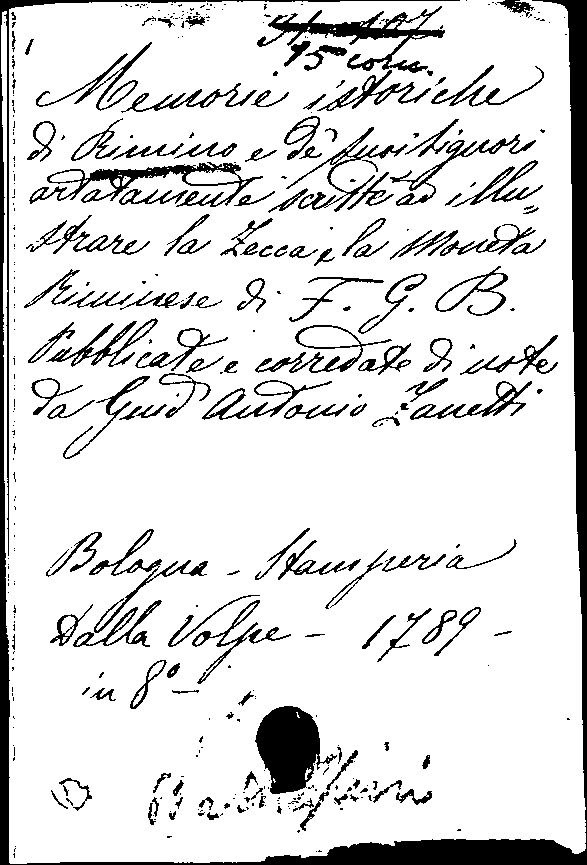 15 corn.
Memorie istoriche
di Rimino e de' suoi Signori
artatamente scritte ad illu=
strare la Zecca, e la Moneta
Riminese di F. G. B.
Pubblicate e corredate di note
da Guid' Antonio Zanetti
Bologna - Stamperia
Dalla Volpe - 1789 -
in 8° -